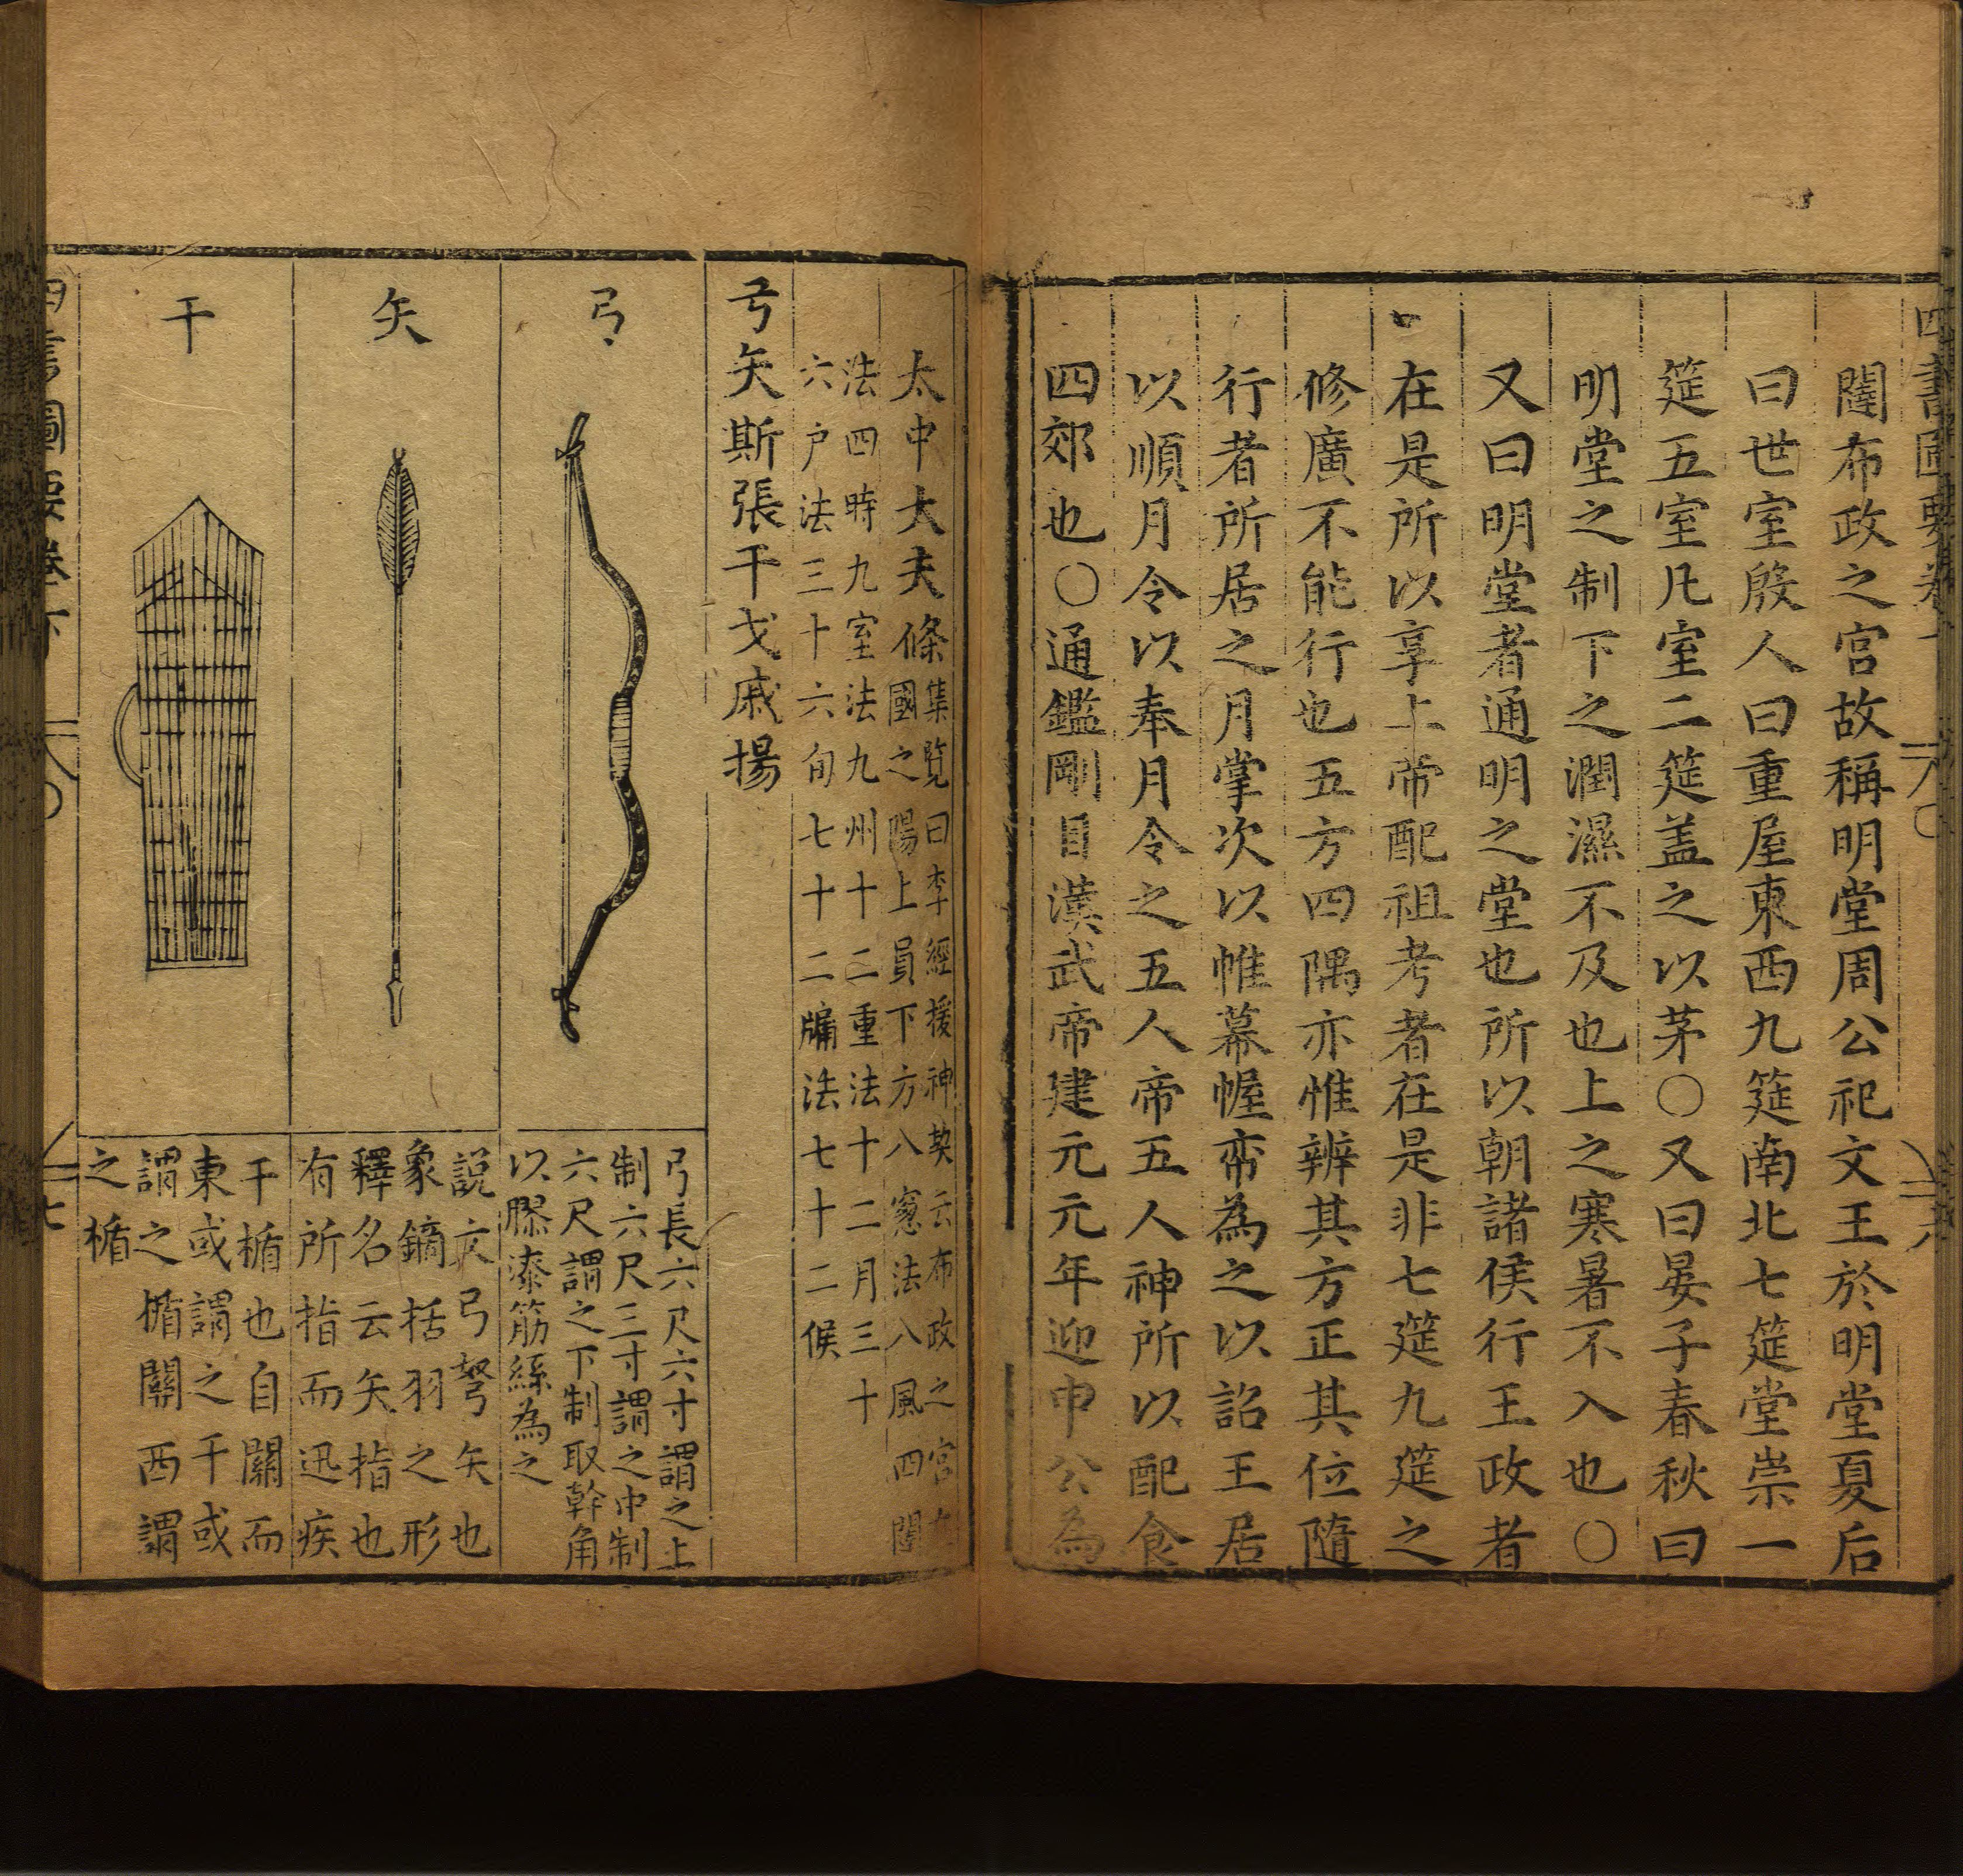 闥布政之宮故稱明堂周公祀文王於明堂夏后
曰世室殷人曰重屋東西九筵南北七筵堂崇一
筵五室凡室二筵盖之以茅〇又曰晏子春秋曰
明堂之制下之潤濕不及也上之寒暑不入也〇
又曰明堂者通明之堂也所以朝諸侯行王政者
在是所以享上帝配祖考者在是非七筵九筵之
修廣不能行也五方四隅亦惟辨其方正其位隨
行者所居之月掌次以帷幕幄帟為之以詔王居
以順月令以奉月令之五人帝五人神所以配食
四郊也〇通鑑剛目漢武帝建元元年迎申公為
太中大夫條集覧曰李經援神契云布政之宮
國之陽上員下方八窻法八風四闥
法四時九室法九州十二重法十二月三十
六户法三十六旬七十二牖法七十二候
弓矢斯張干戈戚揚
弓
弓長六尺六寸謂之上
制六尺三寸謂之中制
六尺謂之下制取幹角
以膠漆筋絲為之
矢
説文弓弩矢也
象鏑括羽之形
釋名云矢指也
有所指而迅疾
干
干楯也自關而
東或謂之干或
謂之楯關西謂
之楯
四書圖要卷下